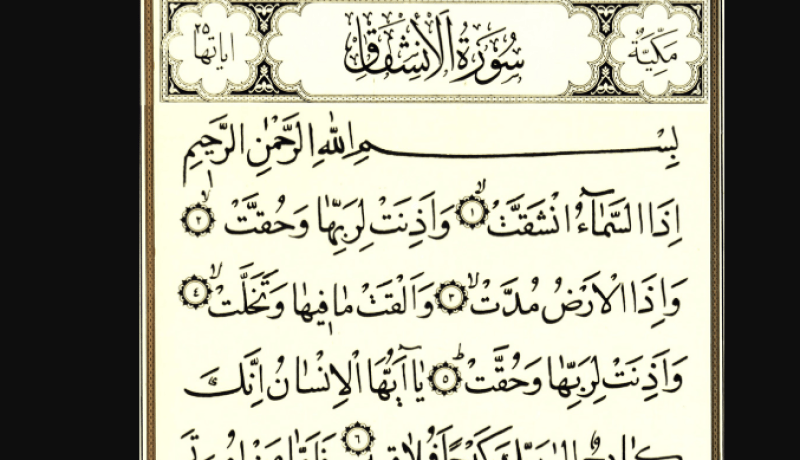 مَكِّيَّةٌ سُورَةُ الْاِنْشِقَاقِ اٰيَاتُهَا ٢٥
بِسْمِ اللهِ الرَّحْمٰنِ الرَّحِيمِ
اِذَا السَّمَٓاءُ انْشَقَّتْۙ ١ وَاَذِنَتْ لِرَبِّهَا وَحُقَّتْۙ ٢
وَاِذَا الْاَرْضُ مُدَّتْۙ ٣ وَاَلْقَتْ مَا فِيهَا وَتَخَلَّتْۙ ٤
وَاَذِنَتْ لِرَبِّهَا وَحُقَّتْۜ ٥ يَٓا اَيُّهَا الْاِنْسَانُ اِنَّكَ
٦